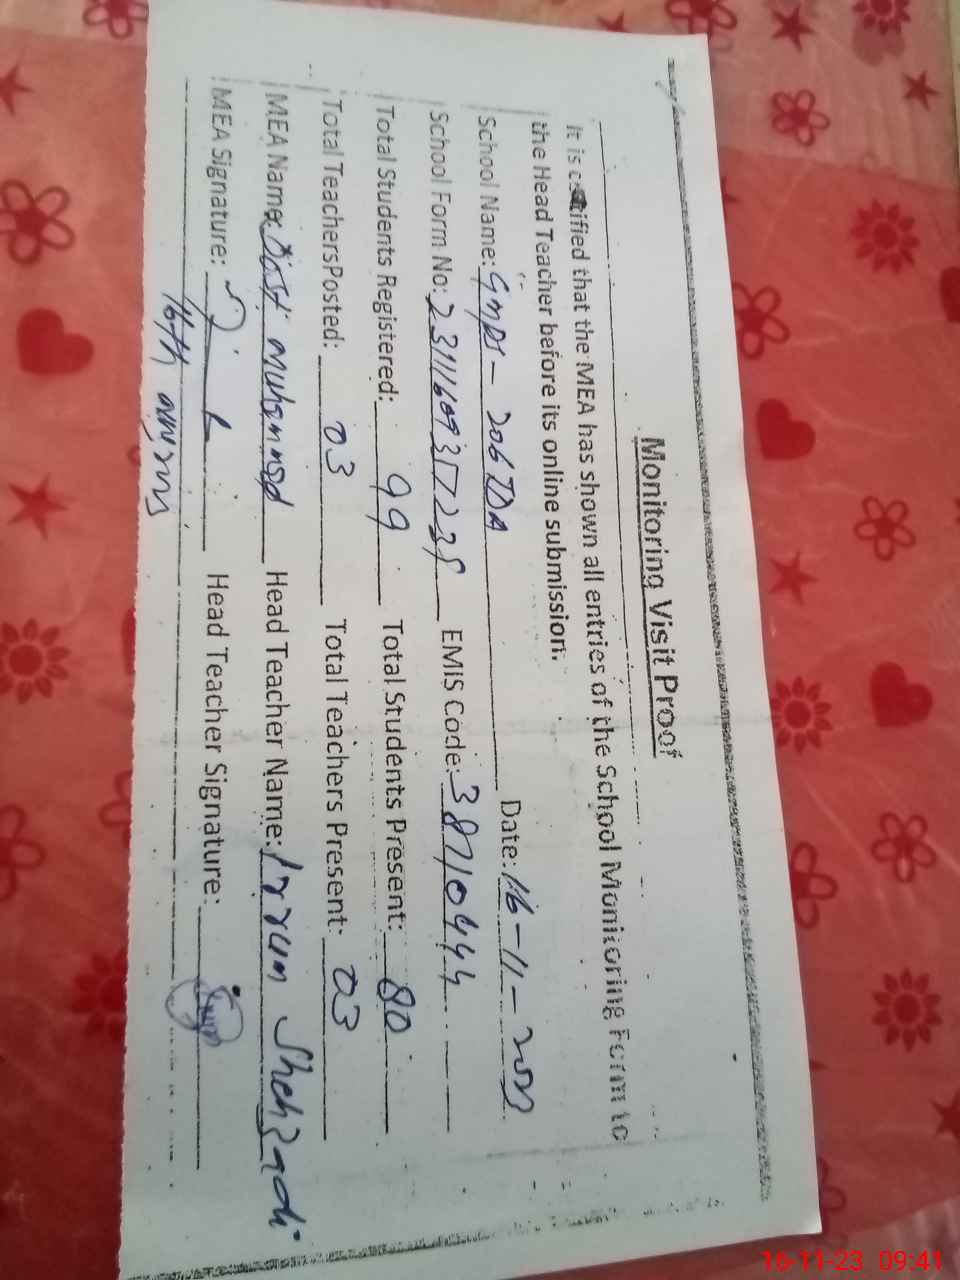 Monitoring Visit Proof
It is certified that the MEA has shown all entries of the School Monitoring Form to
the Head Teacher before its online submission.
School Name: GMPS - 206 TDA Date: 16-11-2023
School Form No: EMIS Code: 38710444
Total Students Registered: 99 Total Students Present: 80
Total TeachersPosted: 03 Total Teachers Present: 03
MEA Name: Dost Muhammad Head Teacher Name: Irrum Shehzadi
MEA Signature: Head Teacher Signature:
16-11-23 09:41